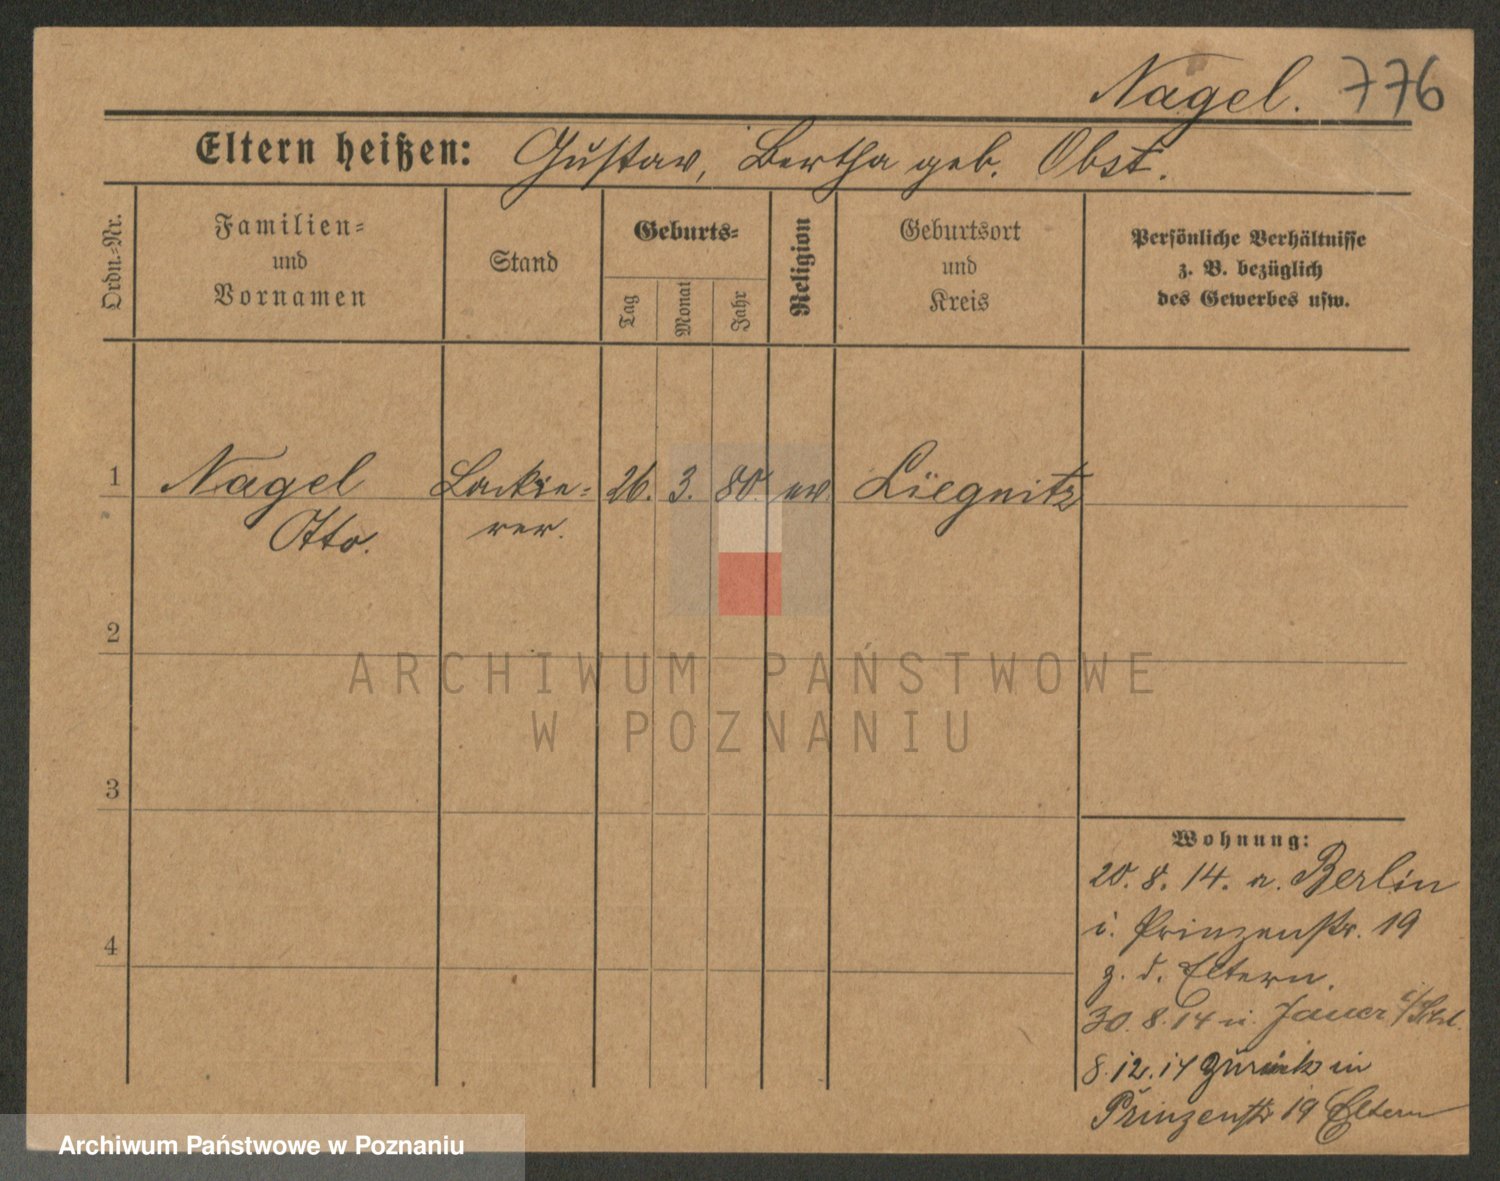 Nagel. 776
Eltern heißen: Gustav, Bertha geb. Obst.
Ordn.-Nr.
Familien-
und
Vornamen
Stand
Geburts-
Tag
Monat
Jahr
Religion
Geburtsort
und
Kreis
Persönliche Verhältnisse
z. B. bezüglich
des Gewerbes usw.
1 Nagel Lackie- 26. 3. 80. ev. Liegnitz
Otto. rer.
2
ARCHIWUM PAŃSTWOWE
W POZNANIU
3
Wohnung:
20. 8. 14. n. Berlin
i. Prinzenstr. 19
z. d. Eltern.
30. 8. 14 n. Jauer i/Schl.
4
8.12.14 zurück in
Prinzenstr 19 Eltern
Archiwum Państwowe w Poznaniu